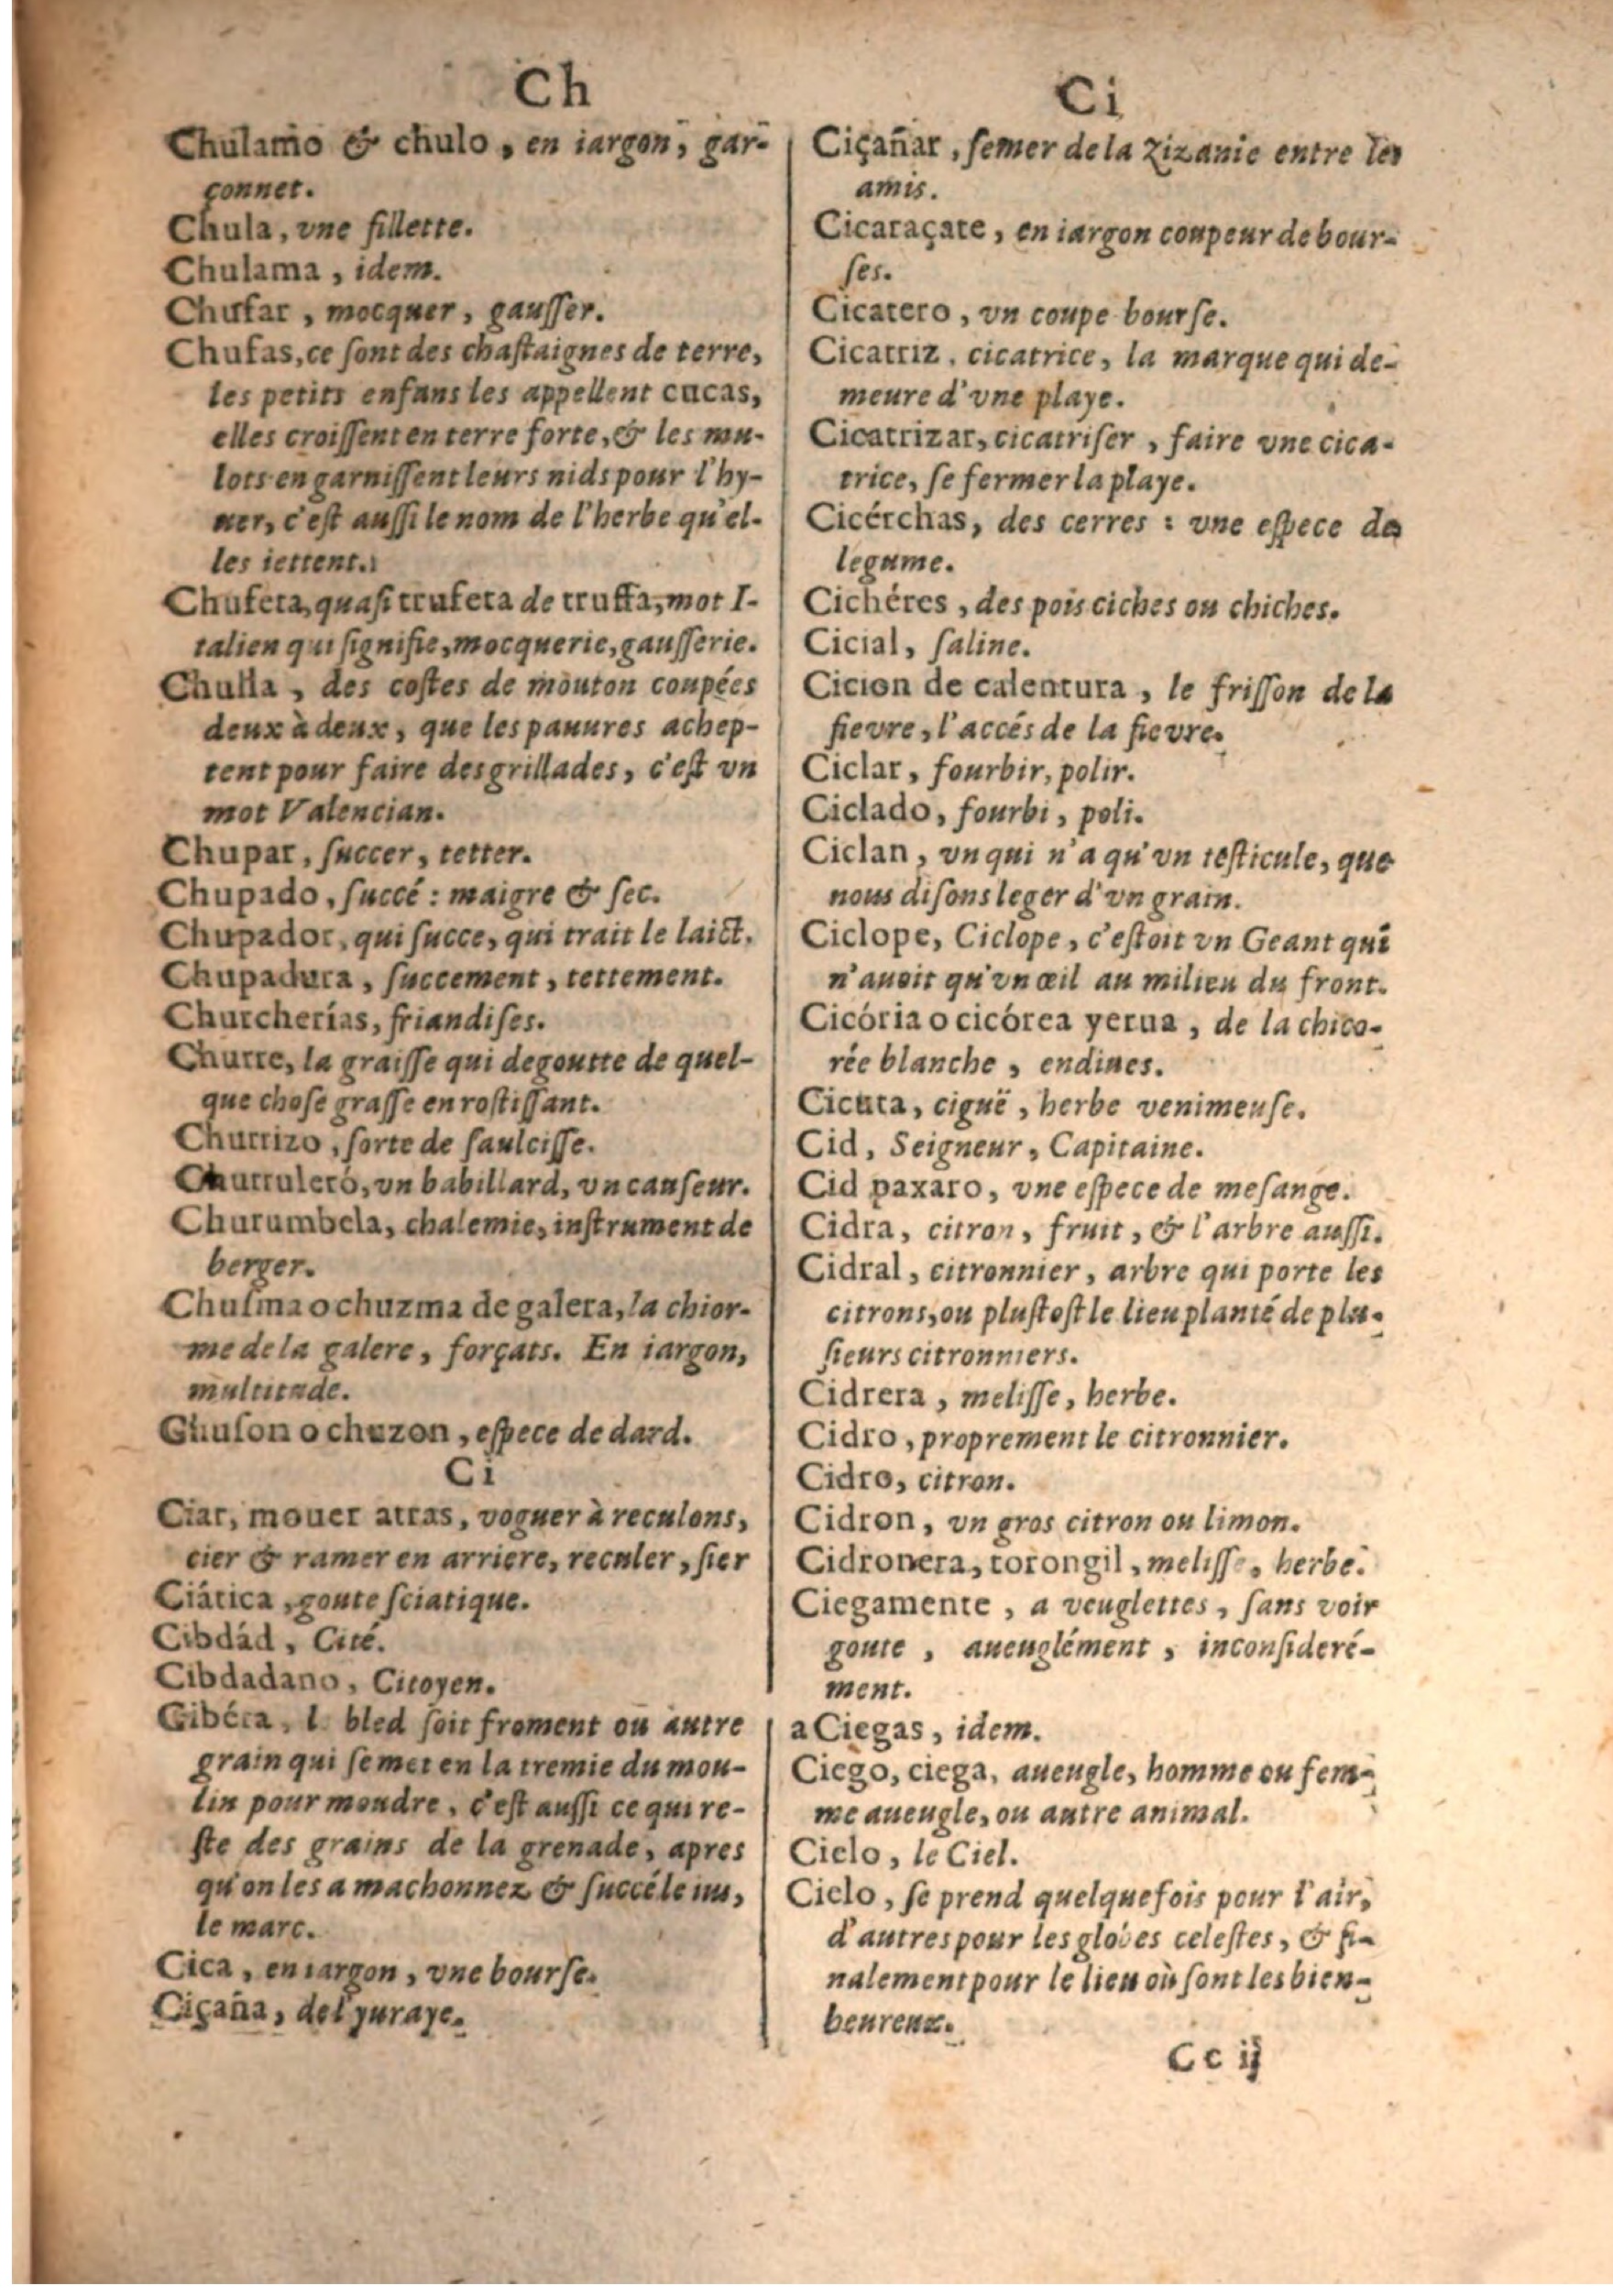 Ch
Chulamo & chulo, en iargon, gar-
çonnet.
Chula, vne fillette.
Chulama, idem.
Chufar, mocquer, gausser.
Chufas, ce sont des chastaignes de terre,
les petits enfans les appellent cucas,
elles croissent en terre forte, & les mu-
lots en garnissent leurs nids pour l'hy-
uer, c'est aussi le nom de l'herbe qu'el-
les iettent.
Chufeta, quasi trufeta de truffa, mot I-
talien qui signifie, mocquerie, gausserie.
Chulla, des costes de mouton coupées
deux à deux, que les pauures achep-
tent pour faire des grillades, c'est vn
mot Valencian.
Chupar, succer, tetter.
Chupado, succé : maigre & sec.
Chupador, qui succe, qui trait le laict.
Chupadura, succement, tettement.
Churcherías, friandises.
Churre, la graisse qui degoutte de quel-
que chose grasse en rostissant.
Churrizo, sorte de saulcisse.
Churruleró, vn babillard, vn causeur.
Churumbela, chalemie, instrument de
berger.
Chusma o chuzma de galera, la chior-
me de la galere, forçats. En iargon,
multitude.
Chuson o chuzon, espece de dard.
Ci
Ciar, mouer atras, voguer à reculons,
cier & ramer en arriere, reculer, sier
Ciática, goute sciatique.
Cibdád, Cité.
Cibdadano, Citoyen.
Cibéra, l bled soit froment ou autre
grain qui se met en la tremie du mou-
lin pour moudre, c'est aussi ce qui re-
ste des grains de la grenade, apres
qu'on les a machonnez & succé le ius,
le marc.
Cica, en iargon, vne bourse.
Ciçaña, de l'yuraye.
Ci
Ciçañar, semer de la Zizanie entre les
amis.
Cicaraçate, en iargon coupeur de bour-
ses.
Cicatero, vn coupe bourse.
Cicatriz, cicatrice, la marque qui de-
meure d'vne playe.
Cicatrizar, cicatriser, faire vne cica-
trice, se fermer la playe.
Cicérchas, des cerres : vne espece de
legume.
Cichéres, des pois ciches ou chiches.
Cicial, saline.
Cicion de calentura, le frisson de la
fievre, l'accés de la fievre.
Ciclar, fourbir, polir.
Ciclado, fourbi, poli.
Ciclan, vn qui n'a qu'vn testicule, que
nous disons leger d'vn grain.
Ciclope, Ciclope, c'estoit vn Geant qui
n'auoit qu'vn œil au milieu du front.
Cicória o cicórea yerua, de la chico-
rée blanche, endiues.
Cicuta, ciguë, herbe venimeuse.
Cid, Seigneur, Capitaine.
Cid paxaro, vne espece de mesange.
Cidra, citron, fruit, & l'arbre aussi.
Cidral, citronnier, arbre qui porte les
citrons, ou plustost le lieu planté de plu-
sieurs citronniers.
Cidrera, melisse, herbe.
Cidro, proprement le citronnier.
Cidro, citron.
Cidron, vn gros citron ou limon.
Cidronera, torongil, melisse, herbe.
Ciegamente, a veuglettes, sans voir
goute, aueuglément, inconsideré-
ment.
a Ciegas, idem.
Ciego, ciega, aueugle, homme ou fem-
me aueugle, ou autre animal.
Cielo, le Ciel.
Cielo, se prend quelquefois pour l'air,
d'autres pour les globes celestes, & fi-
nalement pour le lieu où sont les bien-
heureux.
Cc ij